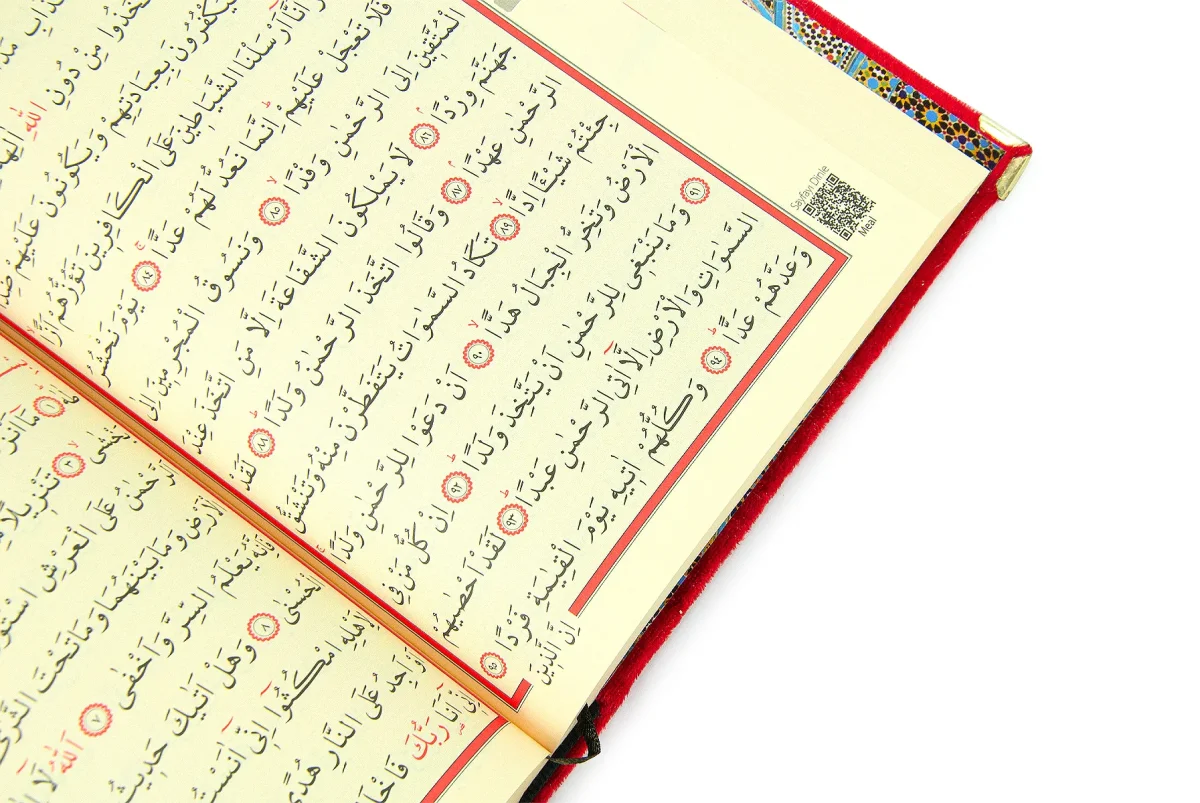 تَّخَذُوا مِنْ دُونِ اللّٰهِ
سَيَكْفُرُونَ بِعِبَادَتِهِمْ وَيَكُونُونَ عَلَيْهِمْ
اَنَّٓا اَرْسَلْنَا الشَّيَاطِينَ عَلَى الْكَافِرِينَ تَؤُزُّهُمْ اَزًّا
فَلَا تَعْجَلْ عَلَيْهِمْ اِنَّمَا نَعُدُّ لَهُمْ عَدًّا ٨٤ يَوْمَ نَحْشُرُ
الْمُتَّقِينَ اِلَى الرَّحْمٰنِ وَفْدًا ٨٥ وَنَسُوقُ الْمُجْرِمِينَ اِلٰى
جَهَنَّمَ وِرْدًا ٨٦ لَا يَمْلِكُونَ الشَّفَاعَةَ اِلَّا مَنِ اتَّخَذَ عِنْدَ
الرَّحْمٰنِ عَهْدًا ٨٧ وَقَالُوا اتَّخَذَ الرَّحْمٰنُ وَلَدًا ٨٨ لَقَدْ
جِئْتُمْ شَيْـًٔا اِدًّا ٨٩ تَكَادُ السَّمٰوَاتُ يَتَفَطَّرْنَ مِنْهُ وَتَنْشَقُّ
الْاَرْضُ وَتَخِرُّ الْجِبَالُ هَدًّا ٩٠ اَنْ دَعَوْا لِلرَّحْمٰنِ وَلَدًا
٩١ وَمَا يَنْبَغِى لِلرَّحْمٰنِ اَنْ يَتَّخِذَ وَلَدًا ٩٢ اِنْ كُلُّ مَنْ فِى
السَّمٰوَاتِ وَالْاَرْضِ اِلَّٓا اٰتِى الرَّحْمٰنِ عَبْدًا ٩٣ لَقَدْ اَحْصٰيهُمْ
وَعَدَّهُمْ عَدًّا ٩٤ وَكُلُّهُمْ اٰتِيهِ يَوْمَ الْقِيٰمَةِ فَرْدًا ٩٥
اِنَّ الَّذِينَ
Sayfayı Dinle
Meal
طٰهٰ ١ مَٓا اَنْزَ
يَخْشٰى ٣ تَنْزِيلًا
اَلرَّحْمٰنُ عَلَى الْعَرْشِ اسْتَوٰ
الْاَرْضِ وَمَا بَيْنَهُمَا وَمَا تَحْتَ الثَّرٰى
فَاِنَّهُ يَعْلَمُ السِّرَّ وَاَخْفٰى ٧ اَللّٰهُ لَٓا
الْحُسْنٰى ٨ وَهَلْ اَتٰيكَ حَدِيثُ
لِاَهْلِهِ امْكُثُٓوا اِنِّٓى اٰنَسْتُ
اَوْ اَجِدُ عَلَى النَّارِ هُدًى
اِنِّٓى اَنَا رَبُّكَ فَاخْلَ